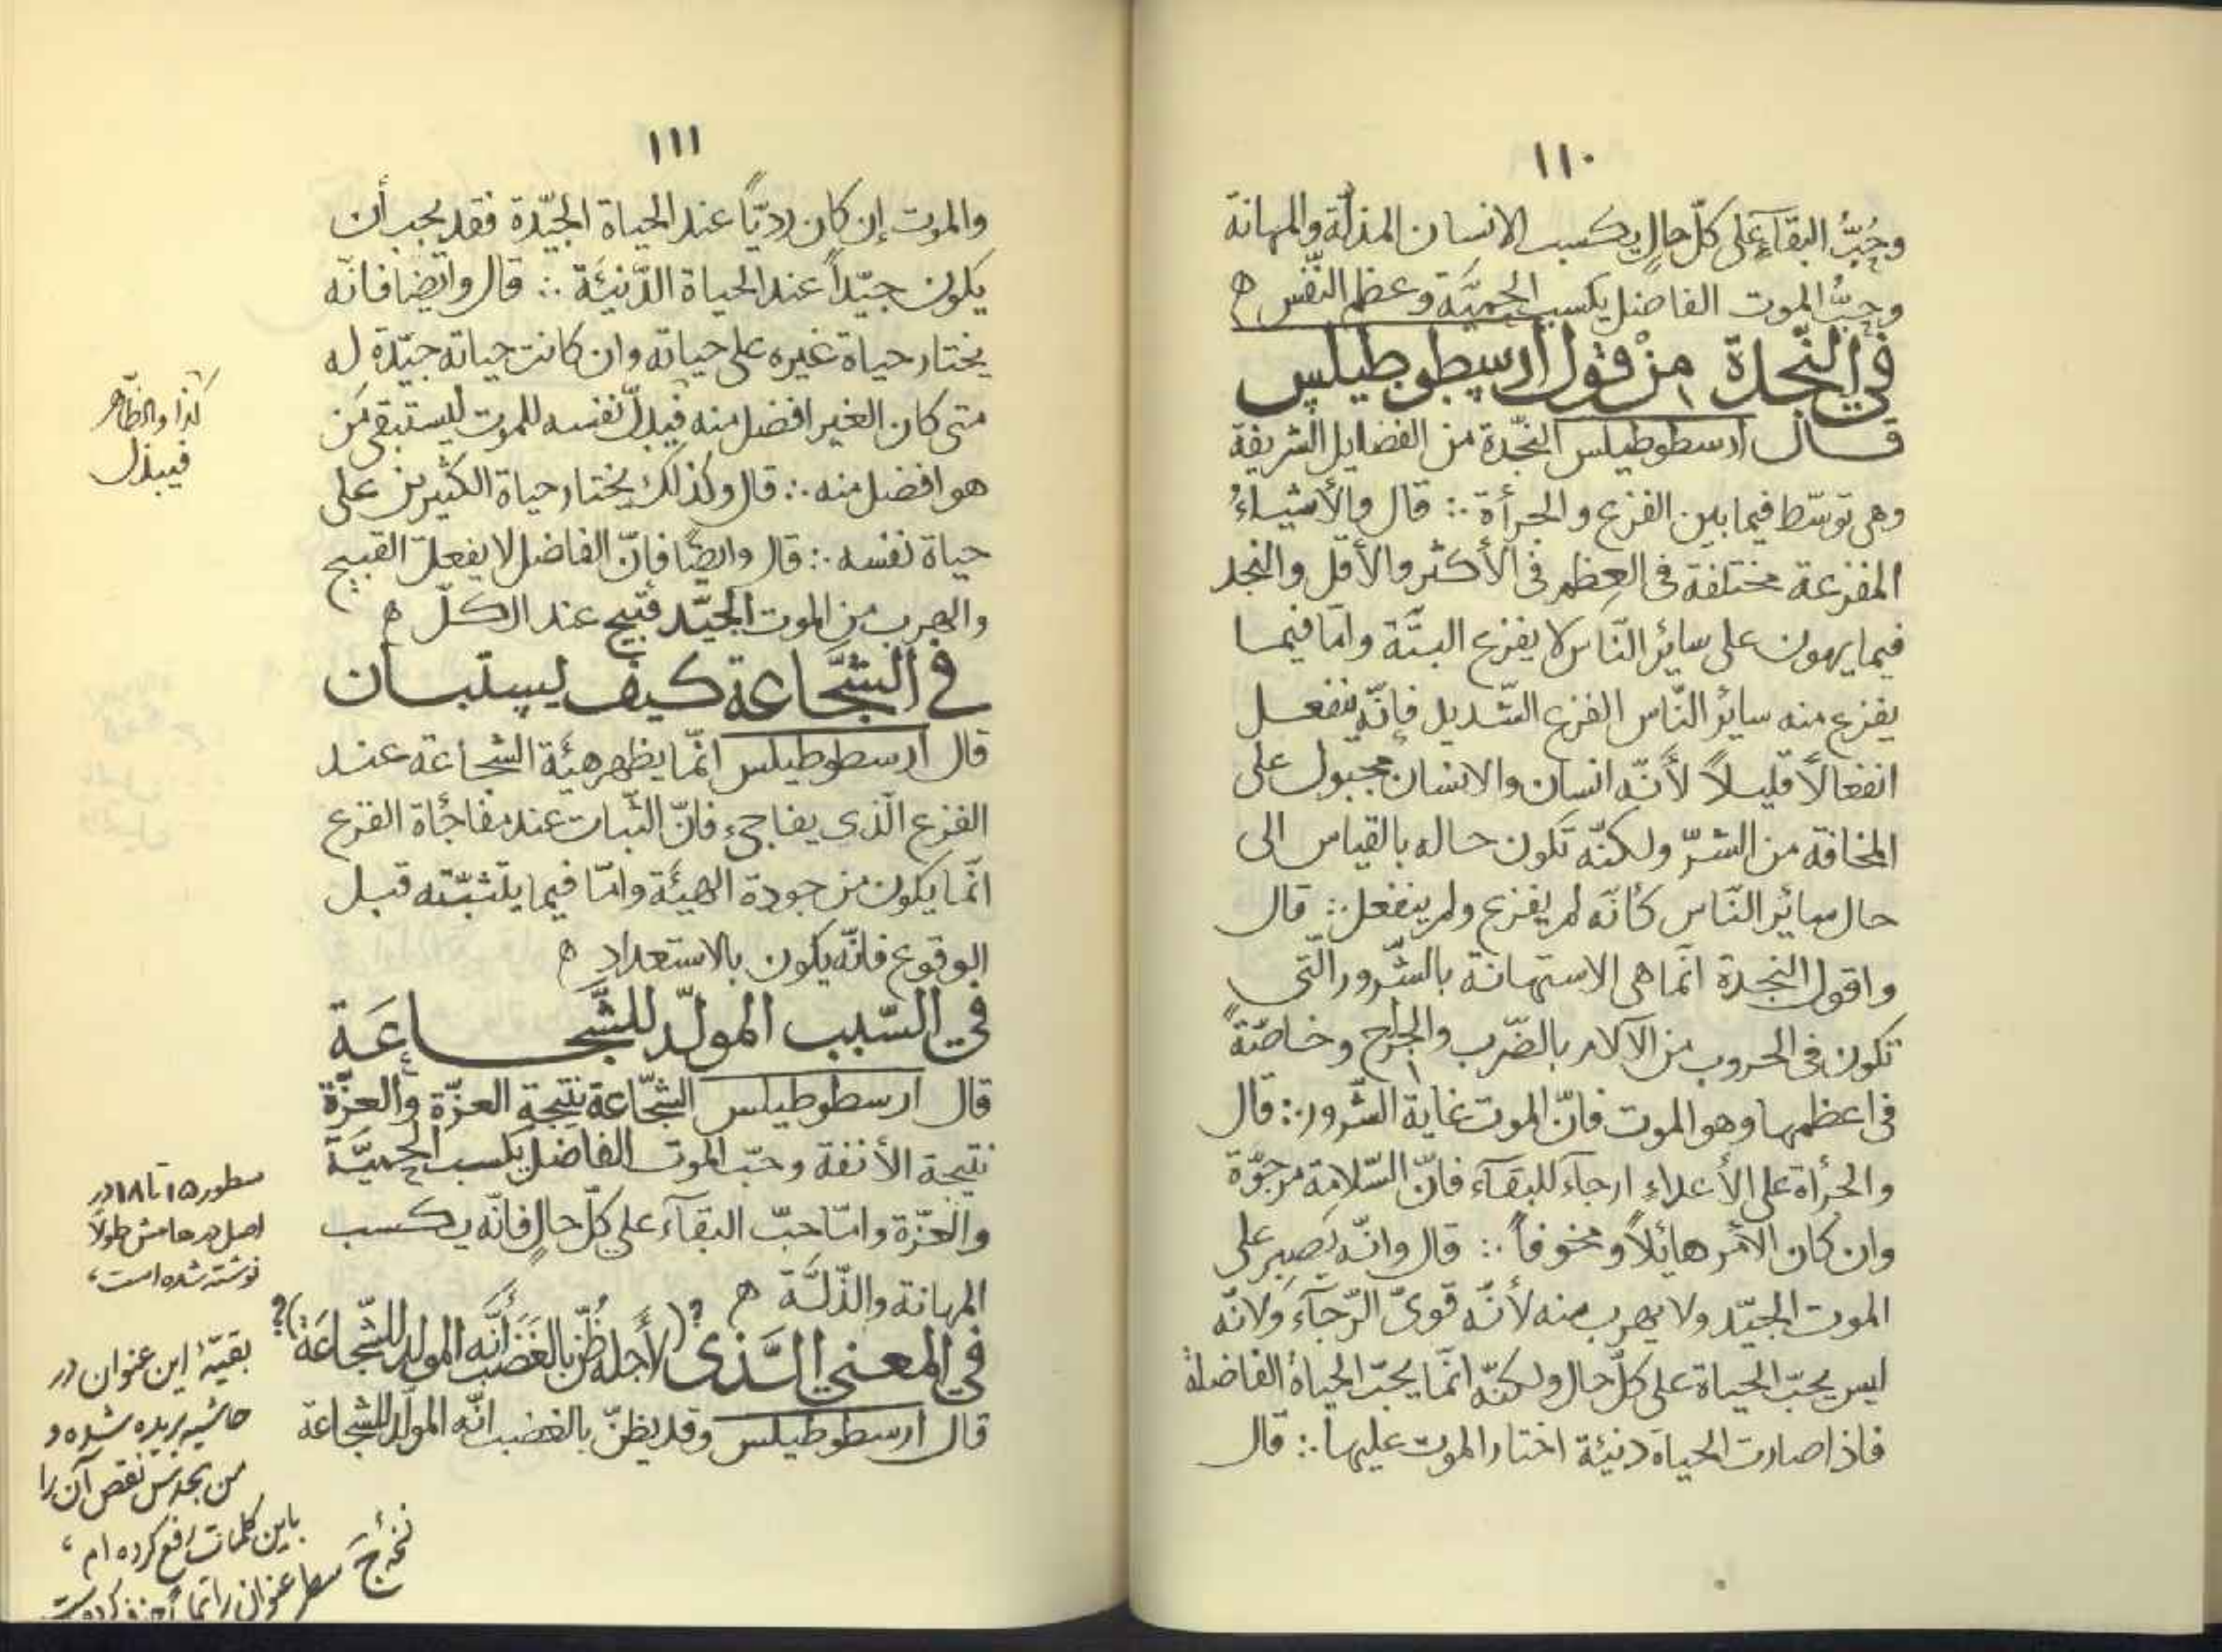 ١١٠
وحُبُّ البقآءِ على كلّ حالٍ يكسب الانسان المذلّة والمهانة
وحبُّ الموت الفاضل يكسب الحميَّة وعظم النّفس ه
في النّجدة من قول ارسطوطيلس
قال ارسطوطيلس النّجدة من الفضايل الشريفة
وهى توسّط فيما بين الفزع والجرأة ∴ قال والأشياءُ
المفزعة مختلفة فى العِظم فى الأكثر والأقل والنجد
فيما يهون على سائر النّاس لا يفزع البتّة وامّا فيما
يفزع منه سائر النّاس الفزع الشديد فإنّه ينفعل
انفعالاً قليلاً لأنّه انسان والانسان مجبول على
المخافة من الشرّ ولكنّه تكون حاله بالقياس الى
حال سائر النّاس كأنّه لم يفزع ولم ينفعل ∴ قال
واقول النجدة انّما هى الاستهانة بالشّرور الّتى
تكون فى الحروب من الآلام بالضّرب والجراح وخاصّةً
فى اعظمها وهو الموت فانّ الموت غاية الشّرور ∴ قال
والجرأة على الأعداء ارجاء للبقآء فانّ السّلامة مرجوّة
وان كان الأمر هائلاً ومخوفاً ∴ قال وانّه يصبر على
الموت الجيّد ولا يهرب منه لأنّه قوىّ الرّجآء ولانّه
ليس يحبّ الحياة على كلّ حال ولكنّه انّما يحبّ الحياة الفاضلة
فاذا صارت الحياة دنيئة اختار الموت عليها ∴ قال
١١١
والموت إن كان رديّاً عند الحياة الجيّدة فقد يجب أن
يكون جيّداً عند الحياة الدّنيئة ∴ قال وايضا فانّه
يختار حياة غيره على حياته وان كانت حياته جيّدة له
متى كان الغير افضل منه فيدلّ نفسه للموت ليستبقى من
هو افضل منه ∴ قال وكذلك يختار حياة الكثيرين على
حياة نفسه ∴ قال وايضًا فإنّ الفاضل لا يفعل القبيح
والهرب من الموت الجيّد قبيح عند الكلّ ه
في الشّجاعة كيف يستبان
قال ارسطوطيلس انّما يظهر هيئة الشجاعة عند
الفزع الّذى يفاجىء فانّ الثّبات عند مفاجأة الفزع
انّما يكون من جودة الهيئة وامّا فيما يتثبّته قبل
الوقوع فانّه يكون بالاستعداد ه
في السّبب المولّد للشّجاعَة
قال ارسطوطيلس الشّجاعة نتيجة العزّة والعزّة
نتيجة الأنفة وحبّ الموت الفاضل يكسب الحميّة
والعزّة وامّا حبّ البقآء على كلّ حال فانّه يكسب
المهانة والذّلّة ه
في المعني الّذى ؟(لأجله ظُنّ بالغَضَب أنّه المولد للشّجاعَة)؟
قال ارسطوطيلس وقد يظنّ بالغضب انّه المولّد للشجاعة
كذا والظّاهر
فيبذل
سطور ١٥ تا ١٨ در
اصل در هامش طولاً
نوشته شده است،
بقيّهٔ اين عنوان در
حاشيه بريده شده و
من بحدس نقص آن را
باين كلمات رفع كرده ام،
سطر عنوان را